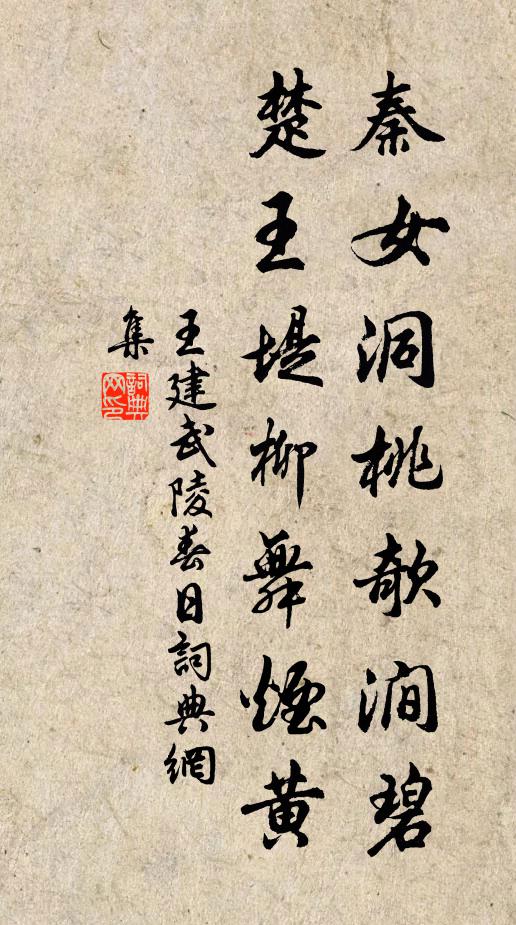 秦女洞桃欹澗碧
楚王堤柳舞煙黃
王建武陵春日詞典網
集
詞典網印